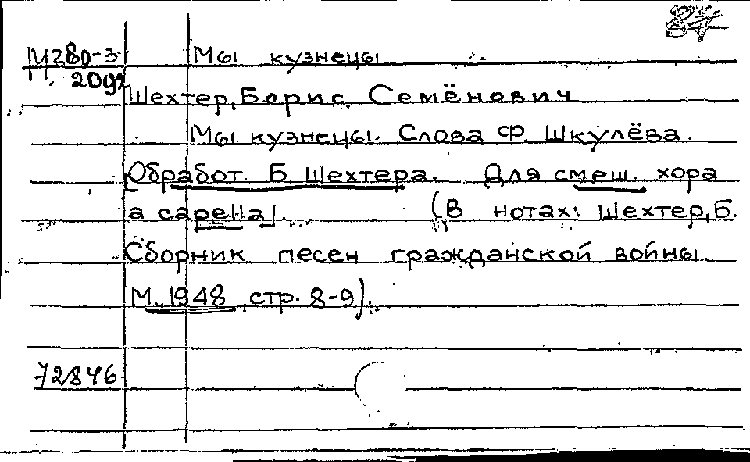 87
М280-3 Мы кузнецы
2092
Шехтер, Борис Семёнович
Мы кузнецы. Слова Ф Шкулёва.
[Обработ. Б Шехтера. Для смеш. хора
a capella]. (В нотах: Шехтер, Б.
Сборник песен гражданской войны
М. 1948 стр. 8-9).
72846